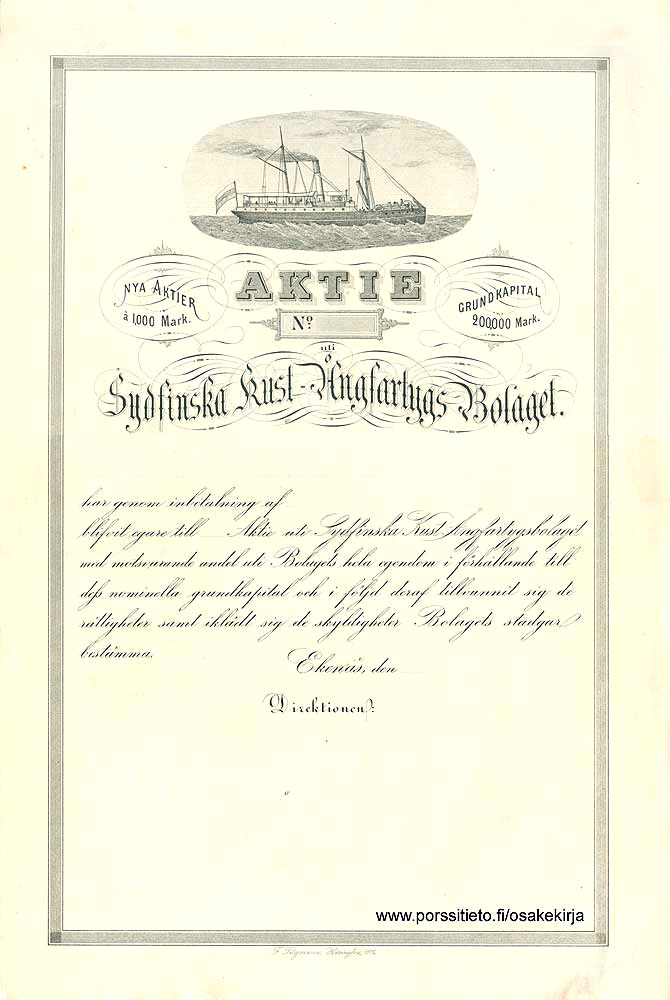 NYA AKTIER
à 1,000 Mark.
AKTIE
GRUNDKAPITAL
200,000 Mark.
Nº
uti
Sydfinska Kust-Ångfartygs Bolaget.
har genom inbetalning af
blifvit egare till Aktie uti Sydfinska Kust Ångfartygsbolaget
med motsvarande andel uti Bolagets hela egendom i förhållande till
dess nominella grundkapital och i följd deraf tillvunnit sig de
rättigheter samt iklädt sig de skyldigheter Bolagets stadgar
bestämma.
Ekenäs, den
Direktionen:
www.porssitieto.fi/osakekirja
F. Tilgmann, Helsingfors,